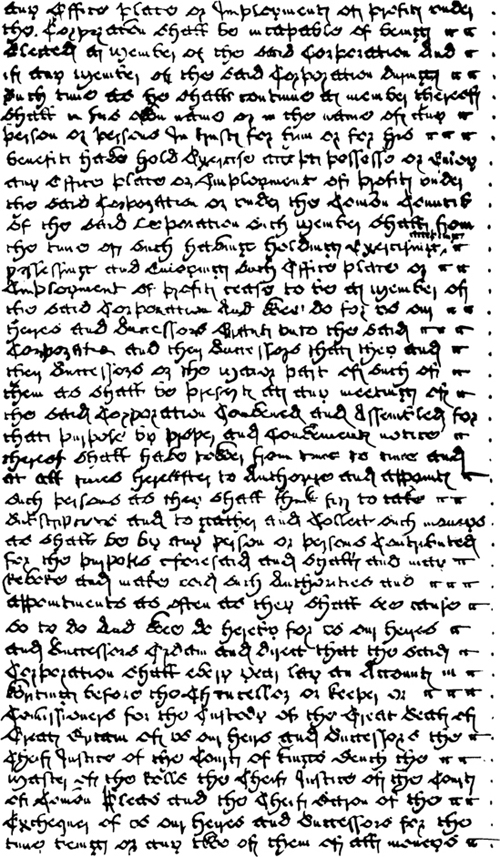 any Office Place or Imployment of Profitt under
the Corporation shall be incapable of being
Elected a Member of the said Corporation And
if any Member of the said Corporation during
such time as he shall continue a Member thereof
shall in his own name or in the name of any
person or persons In trust for him or for his
benefitt have hold Exercise possesse or Enjoy
any Office Place or Imployment of Profitt under
the said Corporation or under the Comõn Councill
of the said Corporation such Member shall from
the time of such having holding Exercising
possessing and Enjoying such Office Place or
Imployment of Profitt cease to be a Member of
the said Corporation And Wee do for us our
heyres and Successors Grant unto the said
Corporation and their Successors that they and
their Successors or the major part of such of
them as shall be present att any meeting of
the said Corporation Convened and Assembled for
that purpose by proper and Convenient notice
thereof shall have power from time to time and
at all times hereafter to Authorize and appoint
such persons as they shall think fitt to take
Subscriptions and to gather and Collect such moneys
as shall be by any person or persons Contributed
for the purposes aforesaid and shall and may
revoke and make void such Authorities and
appointments as often as they shall see cause
so to do And Wee do hereby for us our heyres
and Successors Ordain and direct that the said
Corporation shall every year lay an Account in
writing before the Chancellor or Keeper or
Comissioners for the Custody of the Great Seale of
Great Britain of us our heirs and Successors the
Cheif Justice of the Court of Kings Bench the
Master of the Rolls the Cheif Justice of the Court
of Comõn Pleas and the Cheif Baron of the
Exchequer of us our heyres and Successors for the
time being or any two of them of all moneys